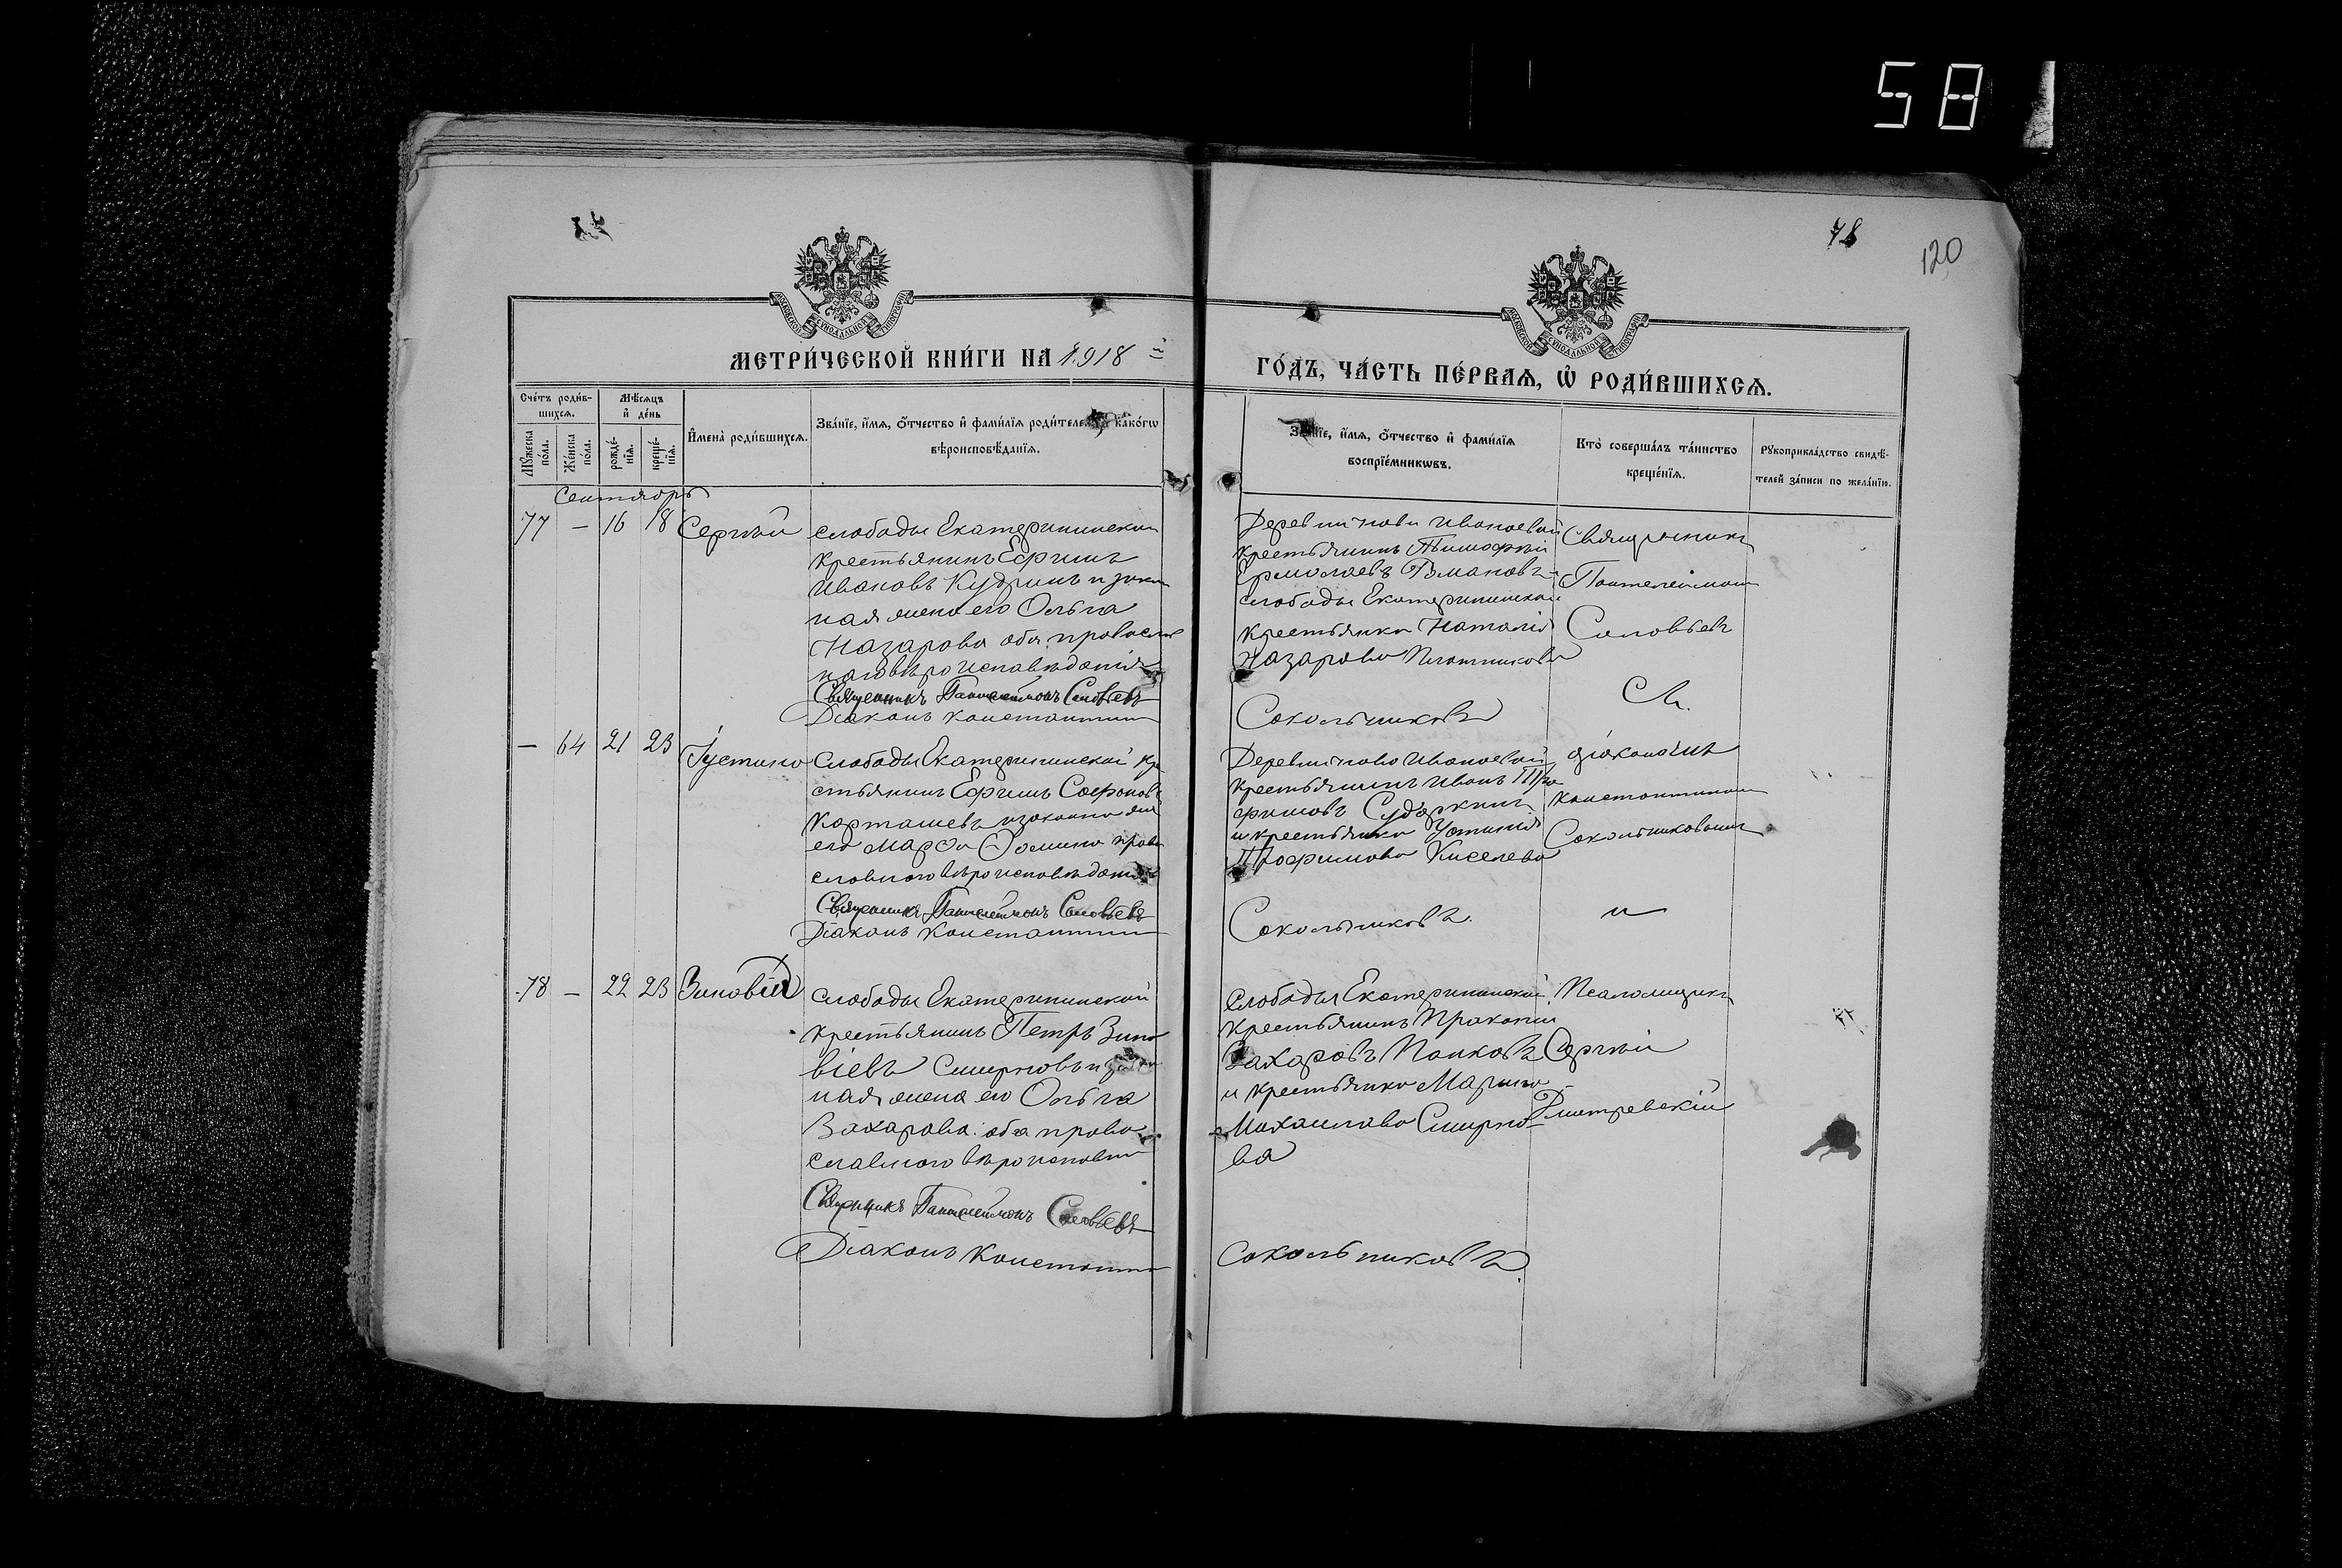 58
78
120
МЕТРИ́ЧЕСКОЙ КНИ́ГИ НА 1918 й
ГО́ДЪ, ЧА́СТЬ ПЕ́РВАѦ, Ѡ҆ РОДИ́ВШИХСѦ.
Сче́тъ роди́в-
шихсѧ.
Мѣ́сѧцъ
и҆ де́нь
Мꙋ́жеска
по́ла.
Же́нска
по́ла.
рожде́-
нїѧ.
креще́-
нїѧ.
И҆мена̀ роди́вшихсѧ.
Зва́нїе, и҆́мѧ, ѻ҆́тчество и҆ фами́лїѧ роди́телей, како́гѡ
вѣроисповѣ́данїѧ.
Зва́нїе, и҆́мѧ, ѻ҆́тчество и҆ фами́лїѧ
воспрїе́мникѡвъ.
Кто̀ соверша́лъ та́инство
креще́нїѧ.
Рꙋкоприкла́дство свидѣ́-
телей за́писи по жела́нїю.
Сентябрь
77 — 16 18 Сергѣй
слободы Екатерининской
крестьянинъ Ефимъ
Ивановъ Кудринъ и закон
ная жена его Ольга
Назарова оба православ
наго вѣроисповѣданія
Священникъ Пантелеймонъ Соловьевъ
Діаконъ Константинъ
Деревни Ново Ивановой
крестьянинъ Тимофѣй
Ермолаевъ
слободы Екатерининской
крестьянка Наталія
Назарова Плотникова
Сокольниковъ
Священникъ
Пантелеймонъ
Соловьевъ
Съ.
— 64 21 23 Іустина
Слободы Екатерининской кре
стьянинъ Ефимъ Софоновъ
Карташевъ и законная жен
его Марфа Фомина право
славнаго вѣроисповѣданія
Священникъ Пантелеймонъ Соловьевъ
Діаконъ Константинъ
Деревни Ново Ивановой
крестьянинъ Иванъ Тро
фимовъ Сударкинъ
и крестьянка Устинія
Трофимова Киселева
Сокольниковъ.
діакономъ
Константиномъ
Сокольниковымъ
и
78 — 22 23 Зиновій
слободы Екатерининской
крестьянинъ Петръ Зино
віевъ Смирновъ и закон
ная жена его Ольга
Захарова оба право
славнаго вѣроисповѣд
Священникъ Пантелеймонъ Соловьевъ
Діаконъ Константинъ
Слободы Екатерининской
крестьянинъ Прокопій
Захаровъ Попковъ
и крестьянка Марина
Михаилова Смирно-
ва
Сокольниковъ.
Псаломщикъ
Сергѣй
Дмитревскій